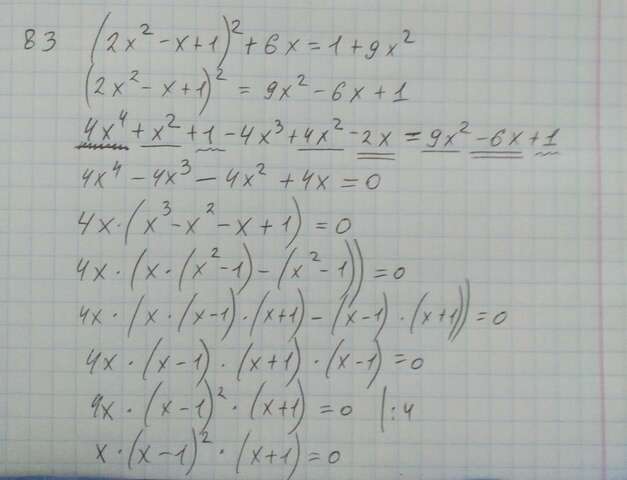 83 (2x² - x + 1)² + 6x = 1 + 9x²
(2x² - x + 1)² = 9x² - 6x + 1
4x⁴ + x² + 1 - 4x³ + 4x² - 2x = 9x² - 6x + 1
4x⁴ - 4x³ - 4x² + 4x = 0
4x · (x³ - x² - x + 1) = 0
4x · (x · (x² - 1) - (x² - 1)) = 0
4x · (x · (x - 1) · (x + 1) - (x - 1) · (x + 1)) = 0
4x · (x - 1) · (x + 1) · (x - 1) = 0
4x · (x - 1)² · (x + 1) = 0 |: 4
x · (x - 1)² · (x + 1) = 0